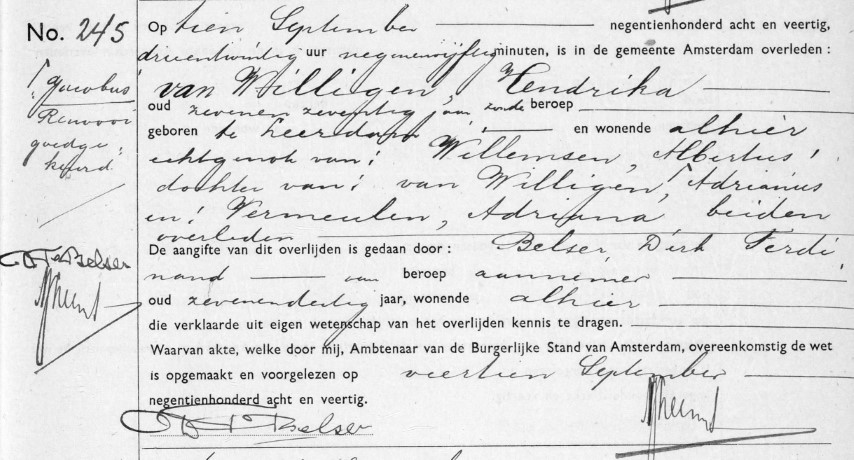 No. 245
Op tien September negentienhonderd acht en veertig,
drieentwintig uur negenenvijftig minuten, is in de gemeente Amsterdam overleden :
van Willigen, Hendrika
oud zevenenzeventig jaar zonder beroep
geboren te Leerdam en wonende alhier
echtgenote van: Willemsen, Albertus!
dochter van: van Willigen, Adrianus
en: Vermeulen, Adriana beiden
overleden
De aangifte van dit overlijden is gedaan door : Belser Dirk Ferdi
nand van beroep aannemer
oud zevenendertig jaar, wonende alhier
die verklaarde uit eigen wetenschap van het overlijden kennis te dragen.
Waarvan akte, welke door mij, Ambtenaar van de Burgerlijke Stand van Amsterdam, overeenkomstig de wet
is opgemaakt en voorgelezen op veertien September
negentienhonderd acht en veertig.
Belser
! Jacobus
Renvooi
goedge:
keurd
Belser